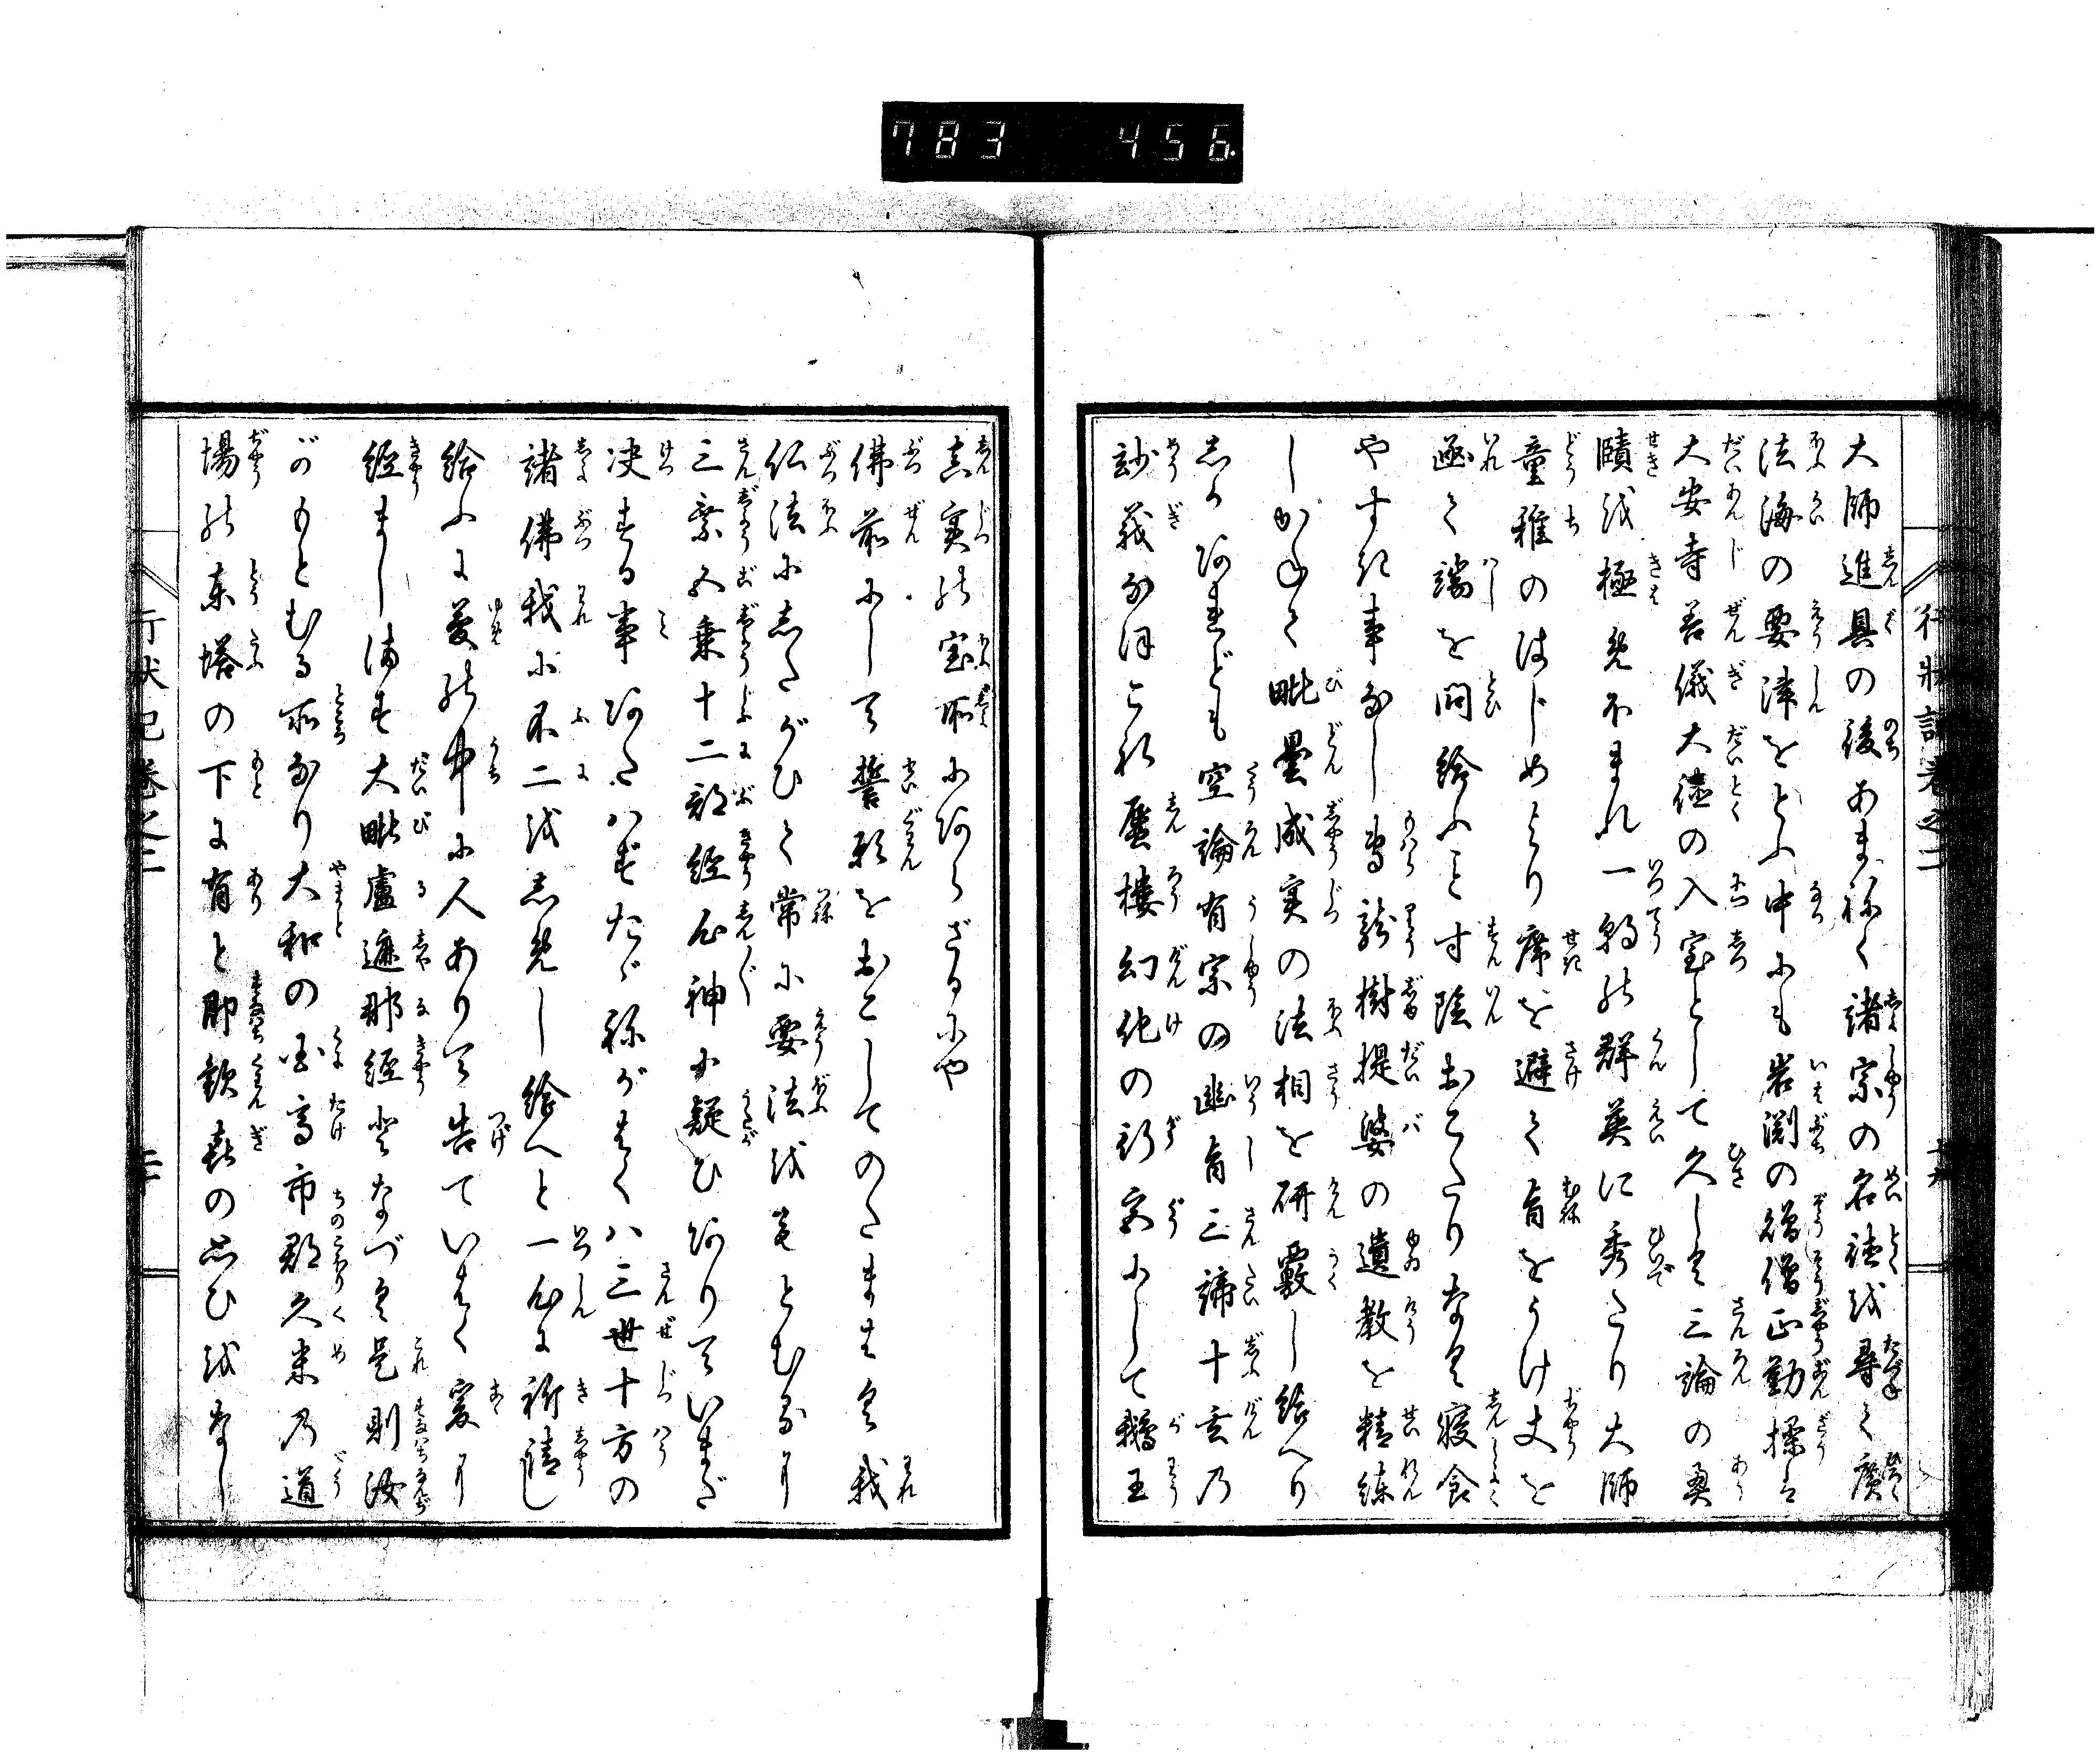 783 456
行状記巻之二 十九
大師進具の後あまねく諸宗の名徳を尋て廣
法海の要津をとふ中にも岩渕の贈僧正勤操は
大安寺善儀大徳の入室として久しく三論の奥
賾を極め不まれ一朝の群英に秀たり大師
童稚のはじめより席を避て肩をうけ丈を
函て端を問給ふこと寸陰おこたりなく寝食
やすき事なし専龍樹提婆の遺教を精練
しかねて毗曇成実の法相を研覈し給へり
しかあれども空論有宗の幽旨三諦十玄乃
妙義なほこれ蜃樓幻化の妄にして鵝王
真実の宝所にあらざるにや
佛前にして誓願をおこしてのたまはく我
仏法にしたがひて常に要法をもとむるに
三乗五乗十二部経心神に疑ひありていまだ
决する事あたはずたゞねがはくハ三世十方の
諸佛我に不二をしめし給へと一心に祈請し
給ふに夢の中に人ありて告ていはく爰に
経まします大毗盧遮那経となづく是則汝
がもとむる所なり大和の国高市郡久米乃道
場の東塔の下に有と即歓喜の思ひをなし
行状記巻之二 二十